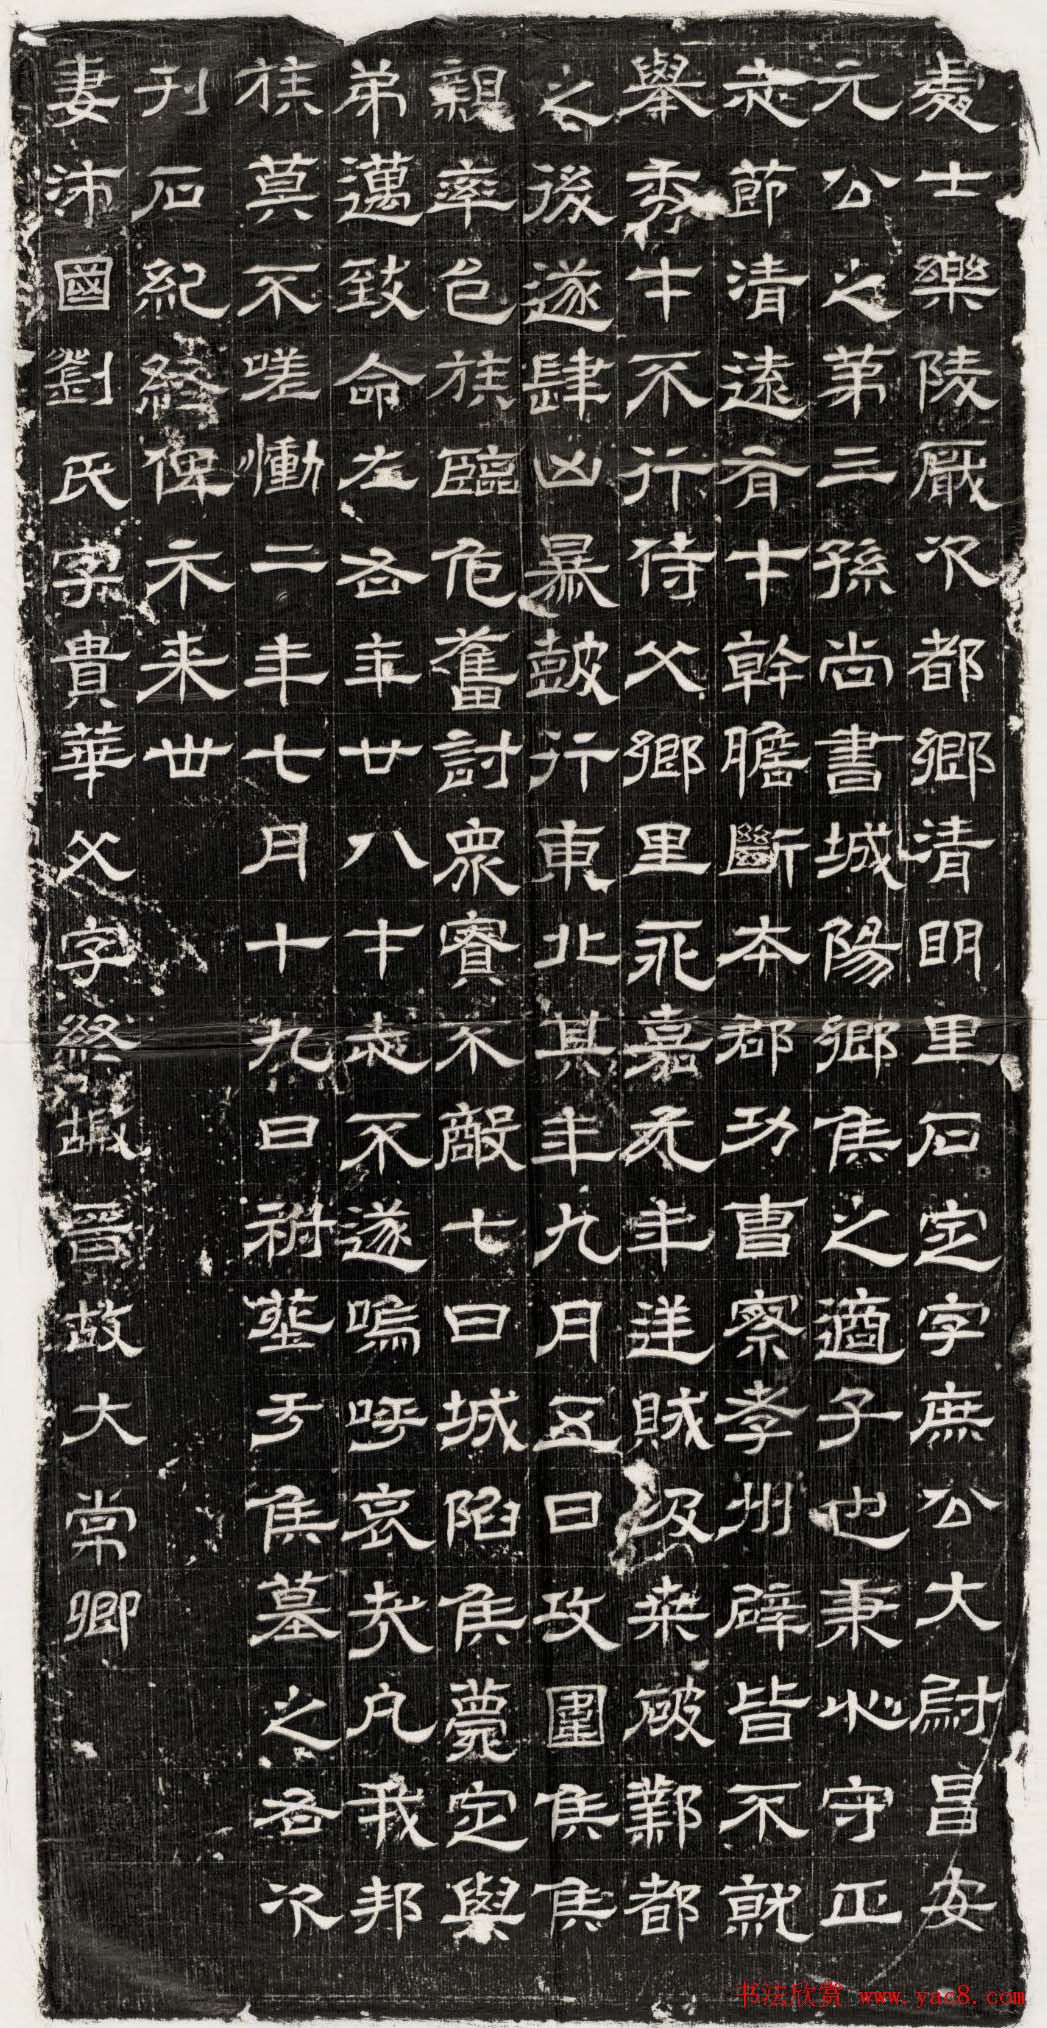 處士樂陵厭次都鄉清明里石定字庶公大尉昌安
元公之第三孫尚書城陽鄉侯之適子也秉心守正
志節清遠有士幹膽斷本郡功曹察孝州辟皆不就
舉秀才不行侍父鄉里永嘉元年逆賊汲桑破鄴都
之後遂肆凶暴鼓行東北其年九月五日攻圍侯侯
親率邑族臨危奮討眾寡不敵七日城陷侯薨定與
弟邁致命左右年廿八才志不遂嗚呼哀哉凡我邦
族莫不嗟慟二年七月十九日祔塟于侯墓之右次
刊石紀終俾示来世
妻沛國劉氏字貴華父字終嘏晉故大常卿
书法欣赏 www.yac8.com